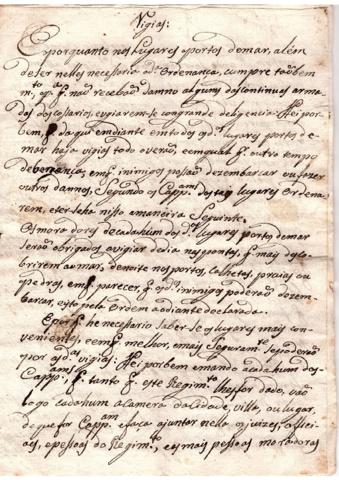 Vigias:
E porquanto nos lugares e portos de mar, além
de ser nelles necessaria a dᵃ Ordenança, cumpre taõbem
mᵗᵒ, q̃ naõ recebaõ damno alguns dos continuos arma
dos cossarios, e vigiarem-se com grande deligencia: Hei por
bem, q̃ daqui em diante em todos os dᵒˢ lugares portos de
mar haja vigias todo o veraõ, e em qualq̃ outro tempo
de bonança, em q̃ inimigos possaõ dezembarcar ou fazer
outros damnos, Segundo os Cappᵃᵐˢ dos taes lugares Ordena
rem, e ter-seha nisso a maneira Seguinte.
Os moradores de cada hum dos dᵒˢ lugares portos de mar
seraõ obrigados, a vigiar de dia nas pontas, q̃ mais desco
brirem ao mar, de noite nos portos, calhetas, praias ou
pedras, em q̃ parecer, q̃ os inimigos poderaõ dezem
barcar, e isto pela Ordem ao diante declarada.
E por q̃ he necessario saber-se os lugares mais con
venientes, e em q̃ melhor, e mais Seguramᵗᵉ se poderaõ
pôr as dᵃˢ vigias: Hei por bem e mando a cada hum dos
Cappᵃᵐˢ, q̃ tanto q̃ este Regimᵗᵒ lhes for dado, vaõ
logo cada hum a Camera da Cidade, villa, ou lugar,
de que for Cappᵃᵐ e faça ajuntar nella os juizes, officia
aes, e pessoas do Regimᵗᵒ, e as mais pessoas moradoras